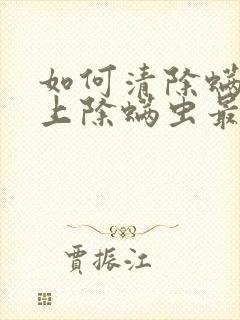 如何清除螨
上除螨虫最
贾振江